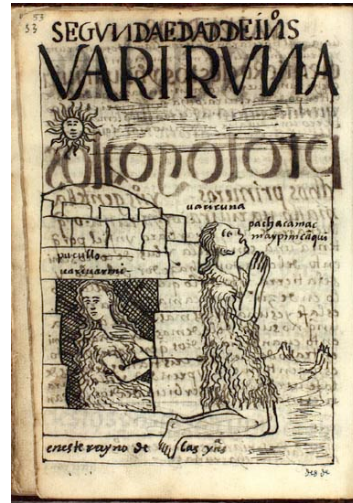 53
53
SEGVNDAEDADDEINS
VARIRVNA
uariruna
pachacamac
maypimcāqui
pucullo
uariuarmi
eneste rayno de las yns
des de